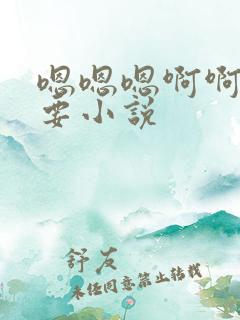 嗯嗯嗯啊啊
要小说
舒友
未经同意禁止转载